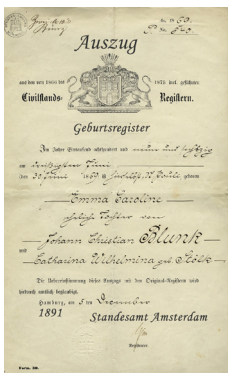 Auszug
aus den von 1866 bis 1875 incl. geführten
Civilstands- Registern.
Geburtsregister
Im Jahre Eintausend achthundert und neun und sechszig
am dreißigsten Juni
den 30 Juni 1869 ist geboren
Emma Caroline
eheliche Tochter von
Johann Christian Blunk
und Catharina Wilhelmina geb.
Die Uebereinstimmung dieses Auszugs mit den Original-Registern wird
hierdurch amtlich beglaubigt.
Hamburg, am 5 ten December
1891 Standesamt Amsterdam
Registrator
Form. 30.